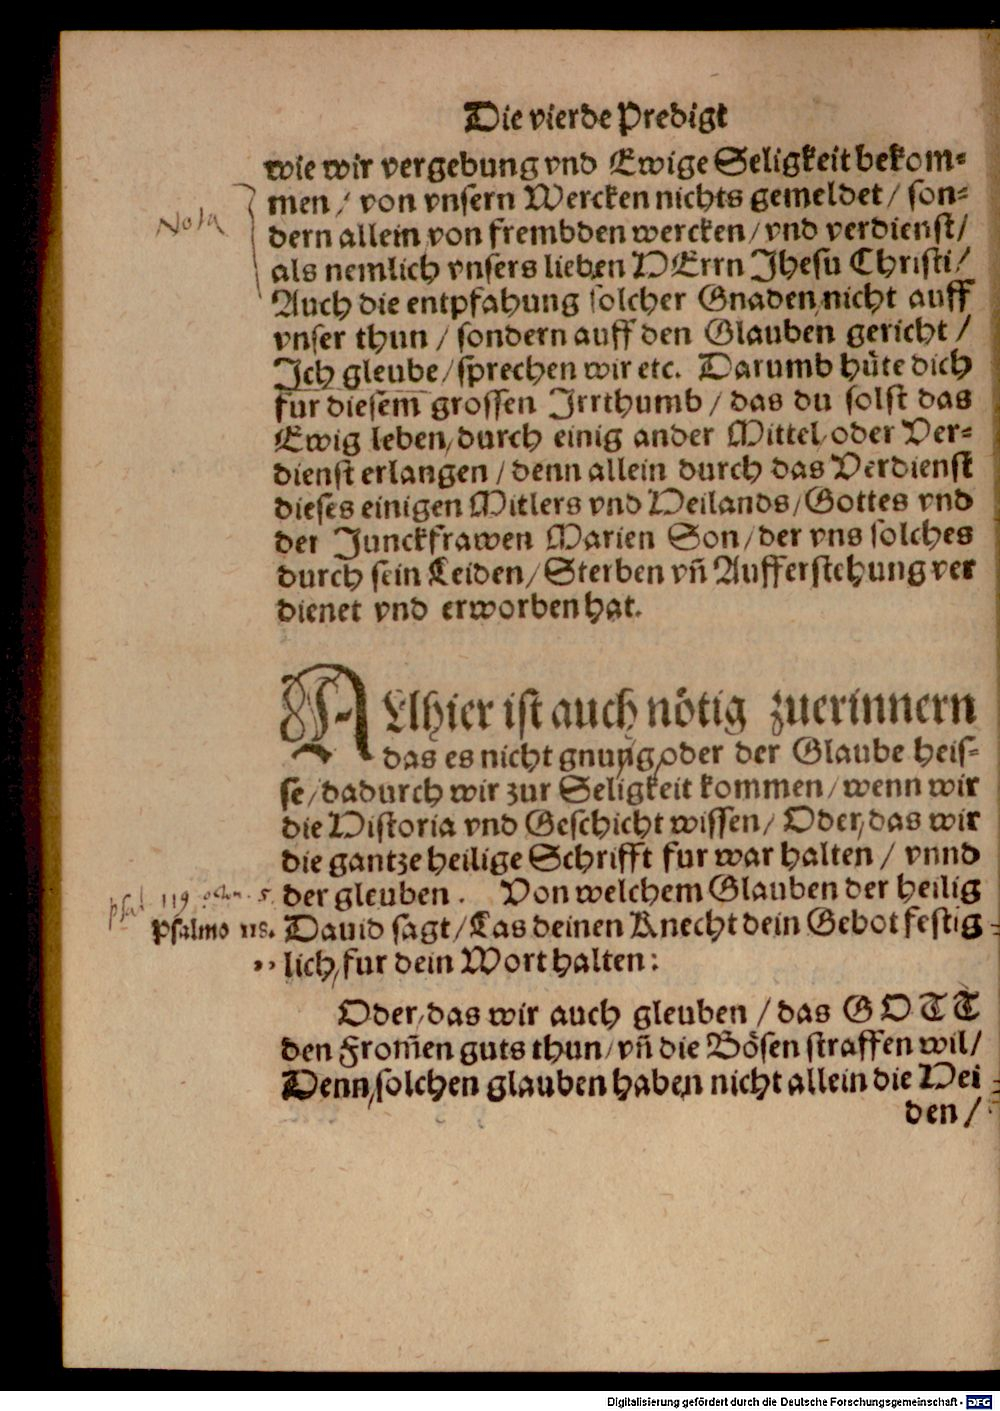 Die vierde Predigt
wie wir vergebung vnd Ewige Seligkeit bekom-
men / von vnsern Wercken nichts gemeldet / son-
Nota
dern allein von frembden wercken / vnd verdienst /
als nemlich vnsers lieben HErrn Jhesu Christi /
Auch die entpfahung solcher Gnaden nicht auff
vnser thun / sondern auff den Glauben gericht /
Ich gleube / sprechen wir etc. Darumb hüte dich
fur diesem grossen Irrthumb / das du solst das
Ewig leben, durch einig ander Mittel oder Ver-
dienst erlangen / denn allein durch das Verdienst
dieses einigen Mitlers vnd Heilands / Gottes vnd
der Junckfrawen Marien Son / der vns solches
durch sein Leiden / Sterben vñ Aufferstehung ver
dienet vnd erworben hat.
ALlhier ist auch nötig zuerinnern
das es nicht gnung, oder der Glaube heis-
se / dadurch wir zur Seligkeit kommen / wenn wir
die Historia vnd Geschicht wissen / Oder, das wir
die gantze heilige Schrifft fur war halten / vnnd
der gleuben. Von welchem Glauben der heilig
psal 119
Psalmo 118. Dauid sagt / Las deinen Knecht dein Gebot festig-
lich, fur dein Wort halten:
Oder, das wir auch gleuben / das GOTT
den From̃en guts thun / vñ die Bösen straffen wil /
Denn, solchen glauben haben nicht allein die Hei-
den /
Digitalisierung gefördert durch die Deutsche Forschungsgemeinschaft - DFG